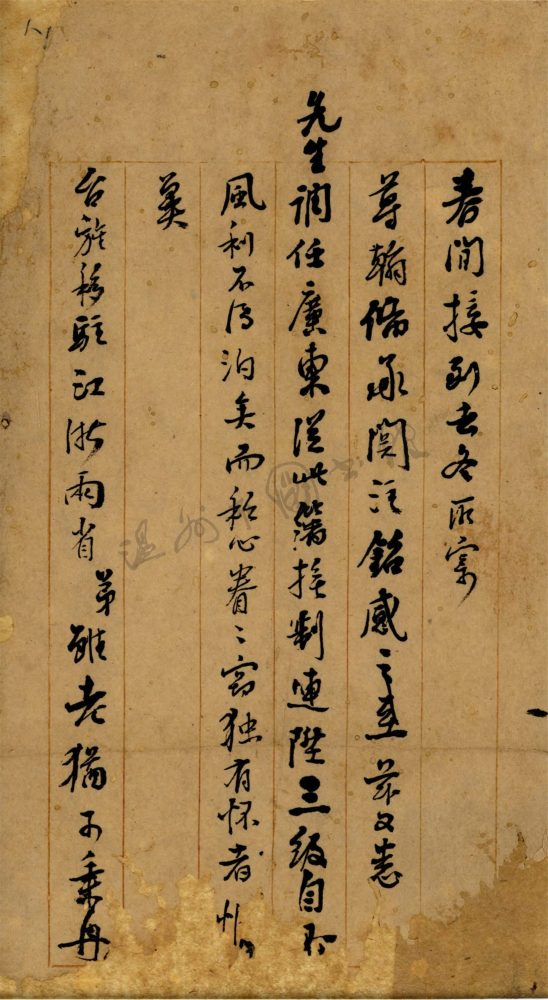 春間接到去冬所寄
尊翰備承關注銘感之至茲又悉
先生調任廣東從此藩接制連陞三級自
風利不得泊矣而私心眷〻竊独有怀者
冀
台旌移駐江浙兩省弟雖老猶可乘舟
溫州圖書館